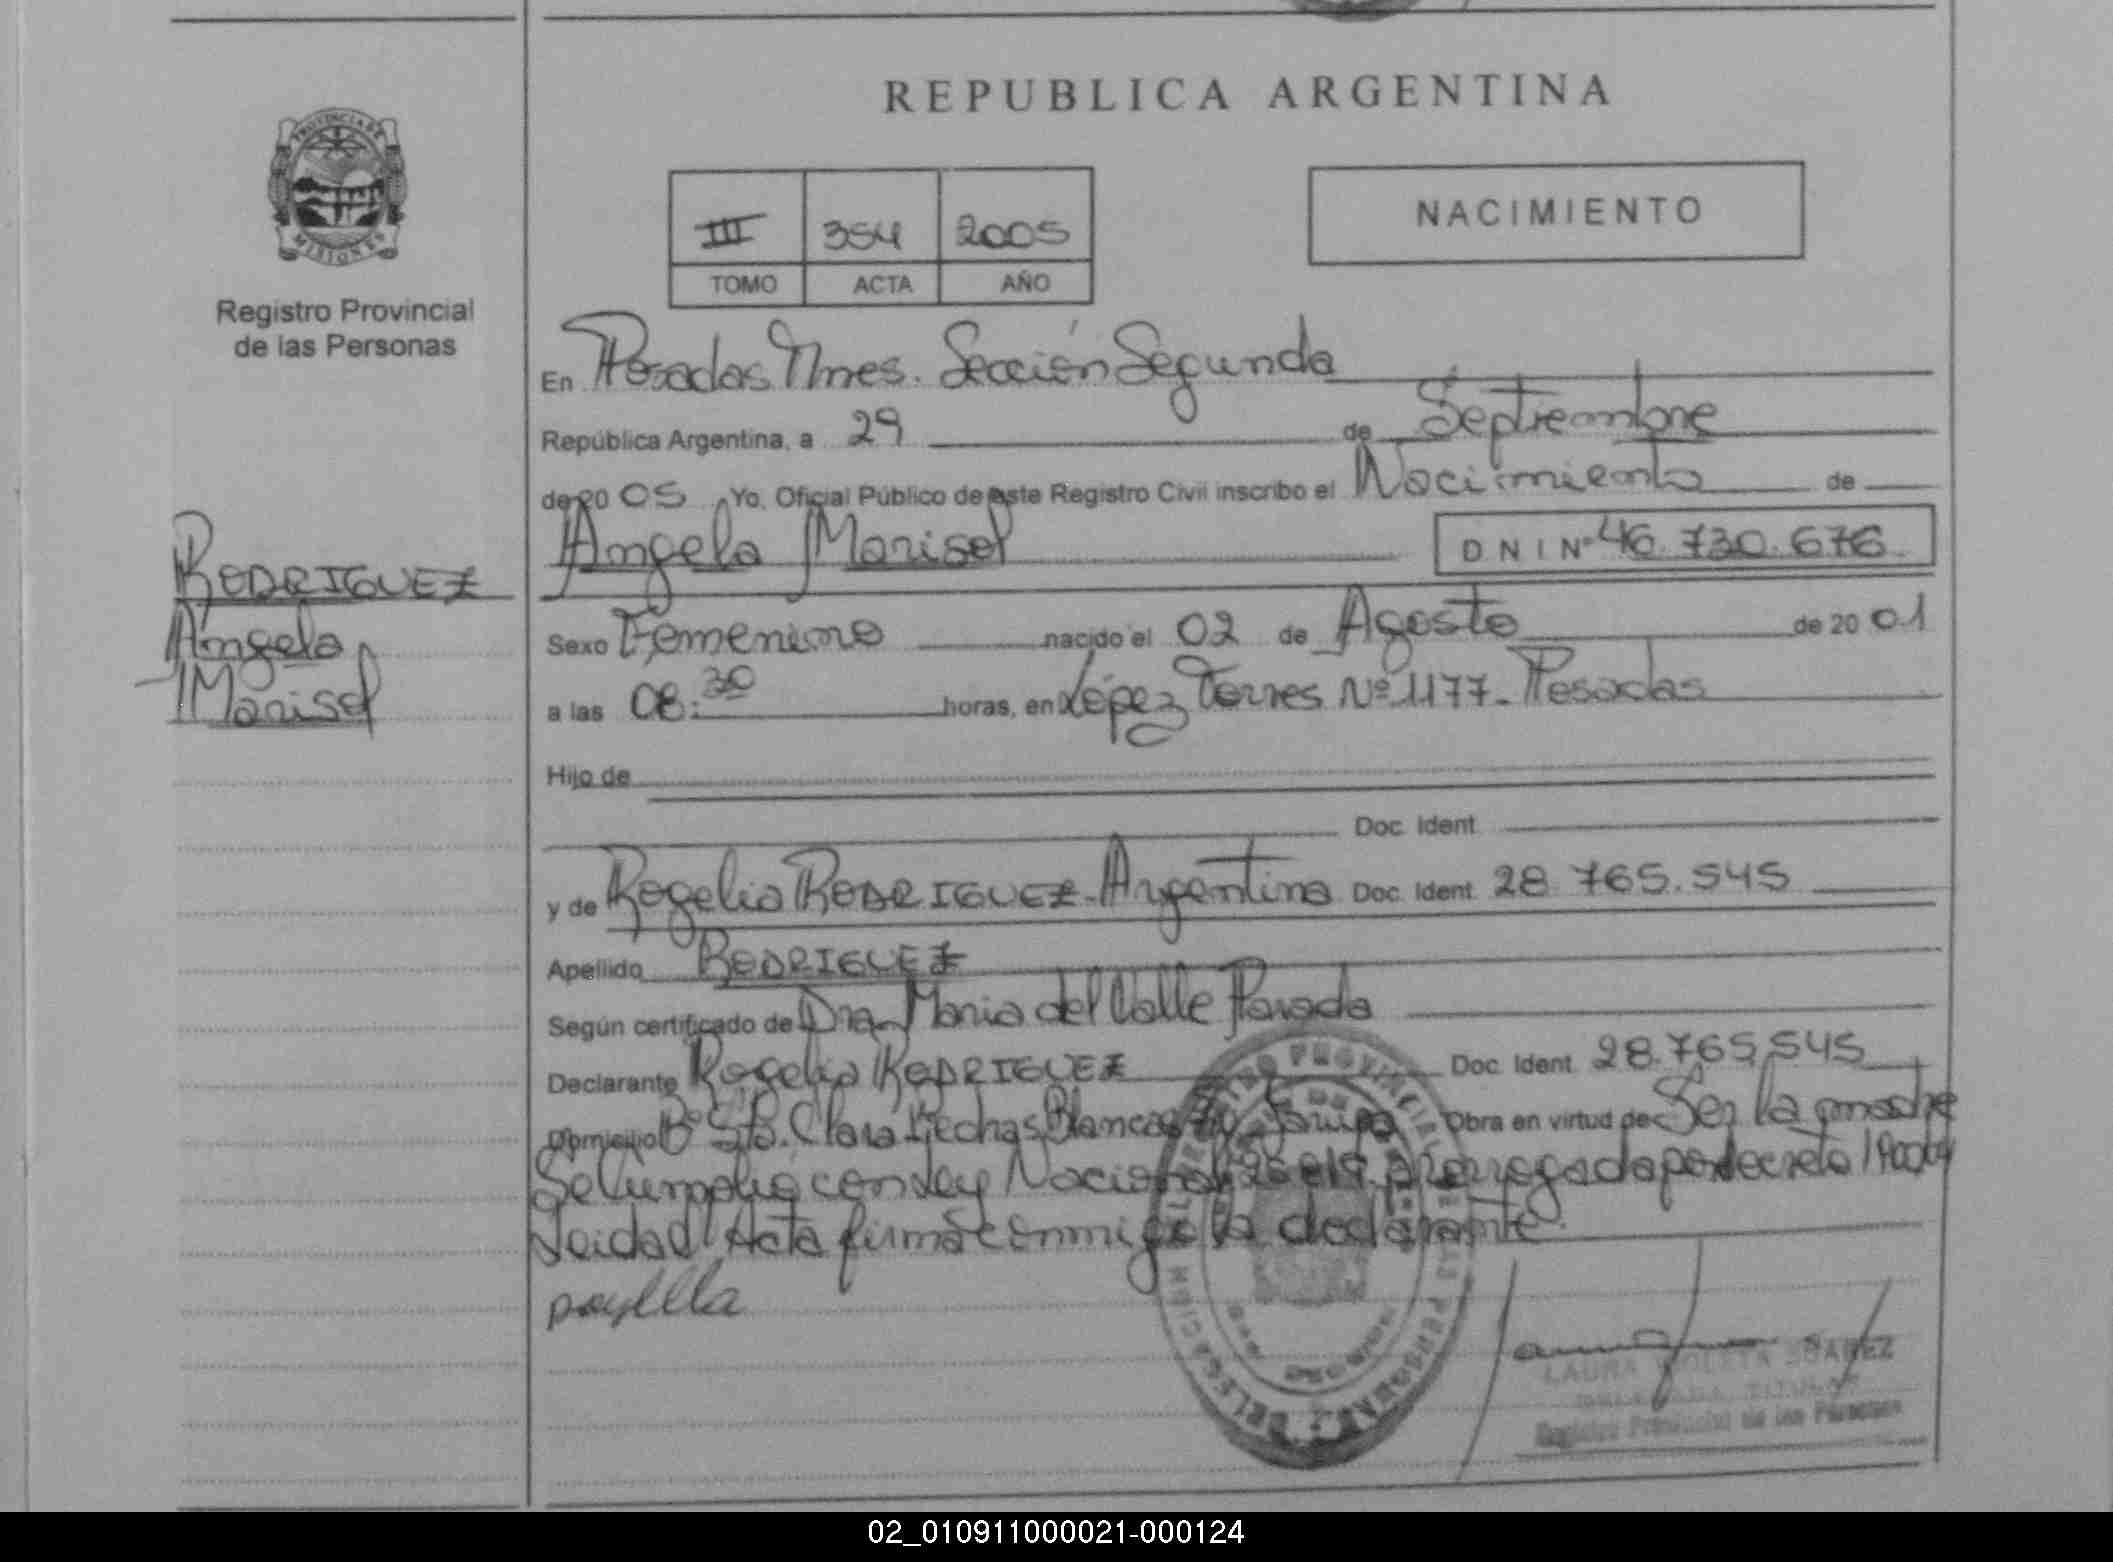 REPUBLICA ARGENTINA
PROVINCIA DE
MISIONES
Registro Provincial
de las Personas
III 354 2005
TOMO ACTA AÑO
NACIMIENTO
En Posadas Mnes. Sección Segunda
República Argentina, a 29 de Septiembre
de 20 05 Yo, Oficial Público de este Registro Civil inscribo el Nacimiento de
Angela Marisol DNI Nº 46.730.676
RODRIGUEZ
Angela
Marisol
Sexo Femenino nacido el 02 de Agosto de 20 01
a las 08:30 horas, en López Torres Nº 1177- Posadas
Hijo de
Doc. Ident.
y de Rogelia RODRIGUEZ- Argentina Doc. Ident. 28.765.545
Apellido RODRIGUEZ
Según certificado de Dra. Maria del Valle Parada
Declarante Rogelia RODRIGUEZ Doc. Ident. 28.765.545
Domicilio Bº Sta. Clara Flechas Blancas Obra en virtud de Ser la madre
Se Cumplió con Ley Nacional prorrogada por decreto
Leida el Acta firma conmigo la declarante.
LAURA VIOLETA SUAREZ
DELEGADA TITULAR
Registro Provincial de las Personas
02_010911000021-000124